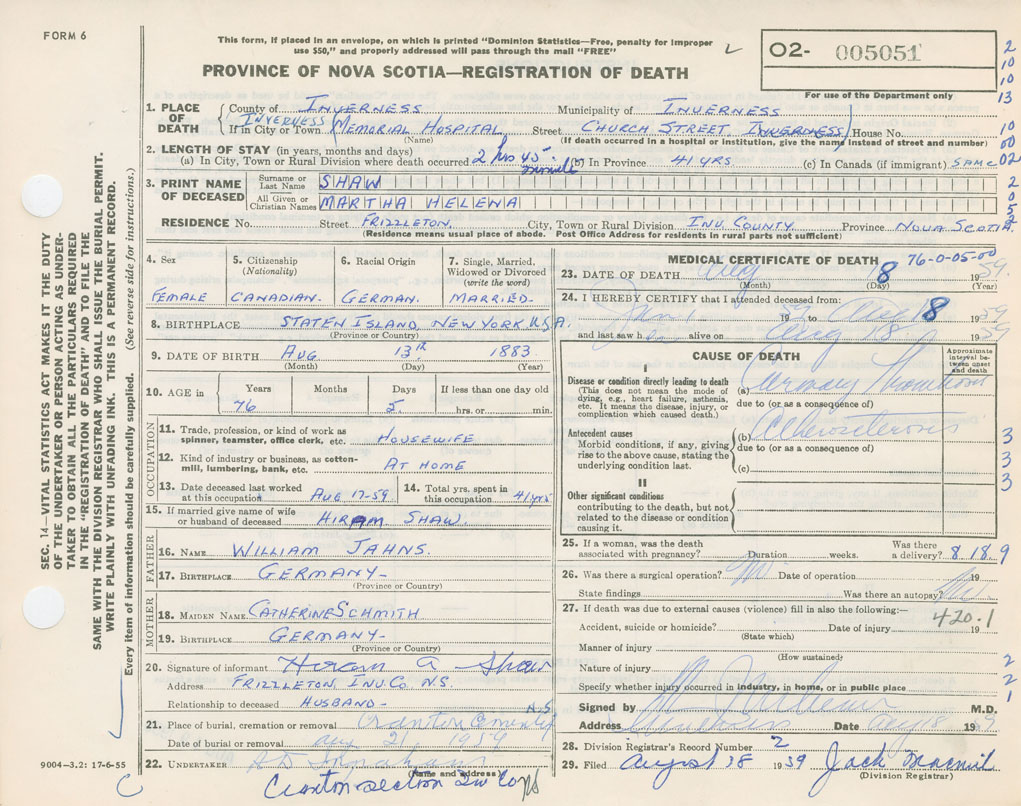 FORM 6
This form, if placed in an envelope, on which is printed "Dominion Statistics—Free, penalty for improper
use $50," and properly addressed will pass through the mail "FREE"
O2- 005051
For use of the Department only
PROVINCE OF NOVA SCOTIA—REGISTRATION OF DEATH
2
10
10
13
10
00
02
2
0
5
2
1. PLACE OF DEATH County of INVERNESS Municipality of INVERNESS
If in City or Town INVERNESS MEMORIAL HOSPITAL Street CHURCH STREET INVERNESS House No.
(Name) (If death occurred in a hospital or institution, give the name instead of street and number)
2. LENGTH OF STAY (in years, months and days)
(a) In City, Town or Rural Division where death occurred 2 hrs 45 (b) In Province 41 YRS (c) In Canada (if immigrant) SAME
3. PRINT NAME OF DECEASED Surname or Last Name SHAW
All Given or Christian Names MARTHA HELENA
RESIDENCE No. Street FRIZZLETON City, Town or Rural Division INV. COUNTY Province NOVA SCOTIA.
(Residence means usual place of abode. Post Office Address for residents in rural parts not sufficient)
4. Sex FEMALE
5. Citizenship (Nationality) CANADIAN.
6. Racial Origin GERMAN.
7. Single, Married, Widowed or Divorced (write the word) MARRIED-
8. BIRTHPLACE STATEN ISLAND, NEW YORK U.S.A.
(Province or Country)
9. DATE OF BIRTH AUG 13th 1883
(Month) (Day) (Year)
10. AGE in Years 76 Months Days 5. If less than one day old hrs. or min.
OCCUPATION
11. Trade, profession, or kind of work as spinner, teamster, office clerk, etc. HOUSEWIFE
12. Kind of industry or business, as cotton-mill, lumbering, bank, etc. AT HOME
13. Date deceased last worked at this occupation AUG 17-59
14. Total yrs. spent in this occupation 41 yrs
15. If married give name of wife or husband of deceased HIRAM SHAW.
FATHER
16. NAME WILLIAM JAHNS.
17. BIRTHPLACE GERMANY-
(Province or Country)
MOTHER
18. MAIDEN NAME CATHERINE SCHMITH
19. BIRTHPLACE GERMANY-
(Province or Country)
20. Signature of informant Hiram A Shaw
Address FRIZZLETON, INV. Co. N.S.
Relationship to deceased HUSBAND-
21. Place of burial, cremation or removal Cemetery N.S.
Date of burial or removal Aug 21 1959
22. UNDERTAKER
(Name and address)
section Inv Co
MEDICAL CERTIFICATE OF DEATH 76-0-05-00
23. DATE OF DEATH Aug 18 1959.
(Month) (Day) (Year)
24. I HEREBY CERTIFY that I attended deceased from:
Jan 1 19 to Aug 18 1959
and last saw h alive on Aug 18 1959
CAUSE OF DEATH
Approximate interval between onset and death
I
Disease or condition directly leading to death
(This does not mean the mode of dying, e.g., heart failure, asthenia, etc. It means the disease, injury, or complication which caused death.)
(a) Coronary Thrombosis
due to (or as a consequence of)
Antecedent causes
Morbid conditions, if any, giving rise to the above cause, stating the underlying condition last.
(b) Atherosclerosis
due to (or as a consequence of)
(c)
II
Other significant conditions
contributing to the death, but not related to the disease or condition causing it.
3
3
3
3
25. If a woman, was the death associated with pregnancy? Duration weeks. Was there a delivery? 8 18 9
26. Was there a surgical operation? Date of operation 19
State findings Was there an autopsy?
27. If death was due to external causes (violence) fill in also the following:—
420.1
Accident, suicide or homicide? Date of injury 19
(State which)
Manner of injury
(How sustained)
Nature of injury
Specify whether injury occurred in industry, in home, or in public place
2
2
1
Signed by M.D.
Address Date Aug 18 19
28. Division Registrar's Record Number 2
29. Filed August 18 1959 Jack
(Division Registrar)
SEC. 14—VITAL STATISTICS ACT MAKES IT THE DUTY
OF THE UNDERTAKER OR PERSON ACTING AS UNDER-
TAKER TO OBTAIN ALL THE PARTICULARS REQUIRED
IN THE "REGISTRATION OF DEATH" AND TO FILE THE
SAME WITH THE DIVISION REGISTRAR WHO SHALL ISSUE THE BURIAL PERMIT.
WRITE PLAINLY WITH UNFADING INK. THIS IS A PERMANENT RECORD.
Every item of information should be carefully supplied. (See reverse side for instructions.)
9004—3.2: 17-6-55
C